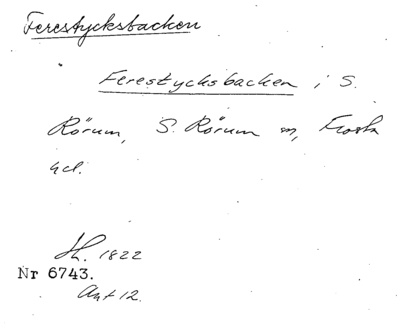 Ferestycksbacken
Ferestycksbacken i S.
Rörum, S. Rörum sn, Frosta
hd.
1822
Nr 6743.
Akt 12.